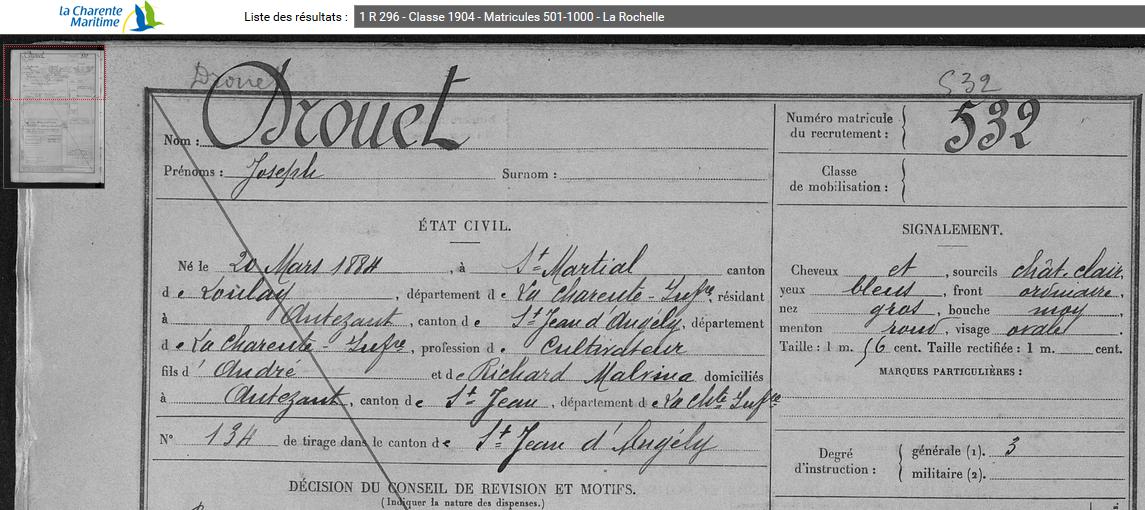 la Charente
Maritime
Liste des résultats : 1 R 296 - Classe 1904 - Matricules 501-1000 - La Rochelle
Drouet
532
Nom : Drouet
Numéro matricule
du recrutement : 532
Prénoms : Joseph Surnom :
Classe
de mobilisation :
ÉTAT CIVIL.
SIGNALEMENT.
Né le 20 Mars 1884, à St Martial canton
de Loulay, département de La Charente-Infre, résidant
à Antezant, canton de St Jean d'Angély, département
de La Charente-Infre, profession de Cultivateur
fils d' André et de Richard Malvina domiciliés
à Antezant, canton de St Jean, département de La Chte Infre
Cheveux et, sourcils chât. clair,
yeux bleus, front ordinaire,
nez gros, bouche moy
menton rond, visage ovale
Taille : 1 m. 56 cent. Taille rectifiée : 1 m. cent.
MARQUES PARTICULIÈRES :
N° 134 de tirage dans le canton de St Jean d'Angély
Degré
d'instruction :
générale (1). 3
militaire (2).
DÉCISION DU CONSEIL DE REVISION ET MOTIFS.
(Indiquer la nature des dispenses.)